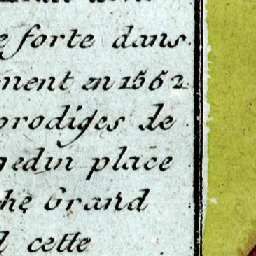 e forte dans
ment en 1552
prodiges de
gedin place
che Grand
cette